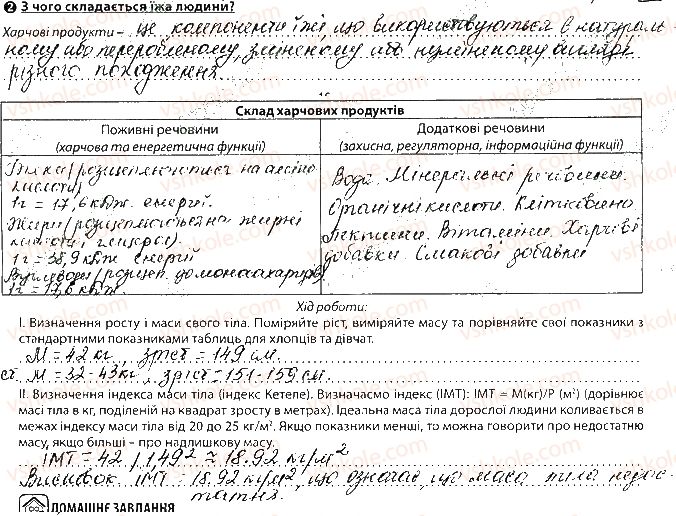 2 З чого складається їжа людини?
Харчові продукти – це компоненти їжі, що використовуються в натураль-
ному або переробленому, зміненому або незміненому вигляді
різного походження.
Склад харчових продуктів
Поживні речовини
(харчова та енергетична функції)
Додаткові речовини
(захисна, регуляторна, інформаційна функції)
Білки (розщеплюються на аміно
кислоти)
1г = 17,6 кДж. енергії.
Жири (розщеплюються на жирні
кислоти і гліцерол).
1г = 38,9 кДж енергії
Вуглеводи (розщеп. до моносахаридів)
1г = 17,6 кДж.
Вода. Мінеральні речовини.
Органічні кислоти. Клітковина
Пектини. Вітаміни. Харчові
добавки. Смакові добавки
Хід роботи:
І. Визначення росту і маси свого тіла. Поміряйте ріст, виміряйте масу та порівняйте свої показники з
стандартними показниками таблиць для хлопців та дівчат.
М = 42 кг, зріст = 149 см.
ст. М = 32-43кг, зріст = 151-159 см.
ІІ. Визначення індекса маси тіла (індекс Кетеле). Визначаємо індекс (ІМТ): ІМТ = М(кг)/Р (м²) (дорівнює
масі тіла в кг, поділеній на квадрат зросту в метрах). Ідеальна маса тіла дорослої людини коливається в
межах індексу маси тіла від 20 до 25 кг/м². Якщо показники менші, то можна говорити про недостатню
масу, якщо більші – про надлишкову масу.
ІМТ = 42 / 1,49² ≈ 18.92 кг/м²
Висновок ІМТ = 18.92 кг/м², що означає, що маса тіла недос-
татня.
ДОМАШНЄ ЗАВДАННЯ